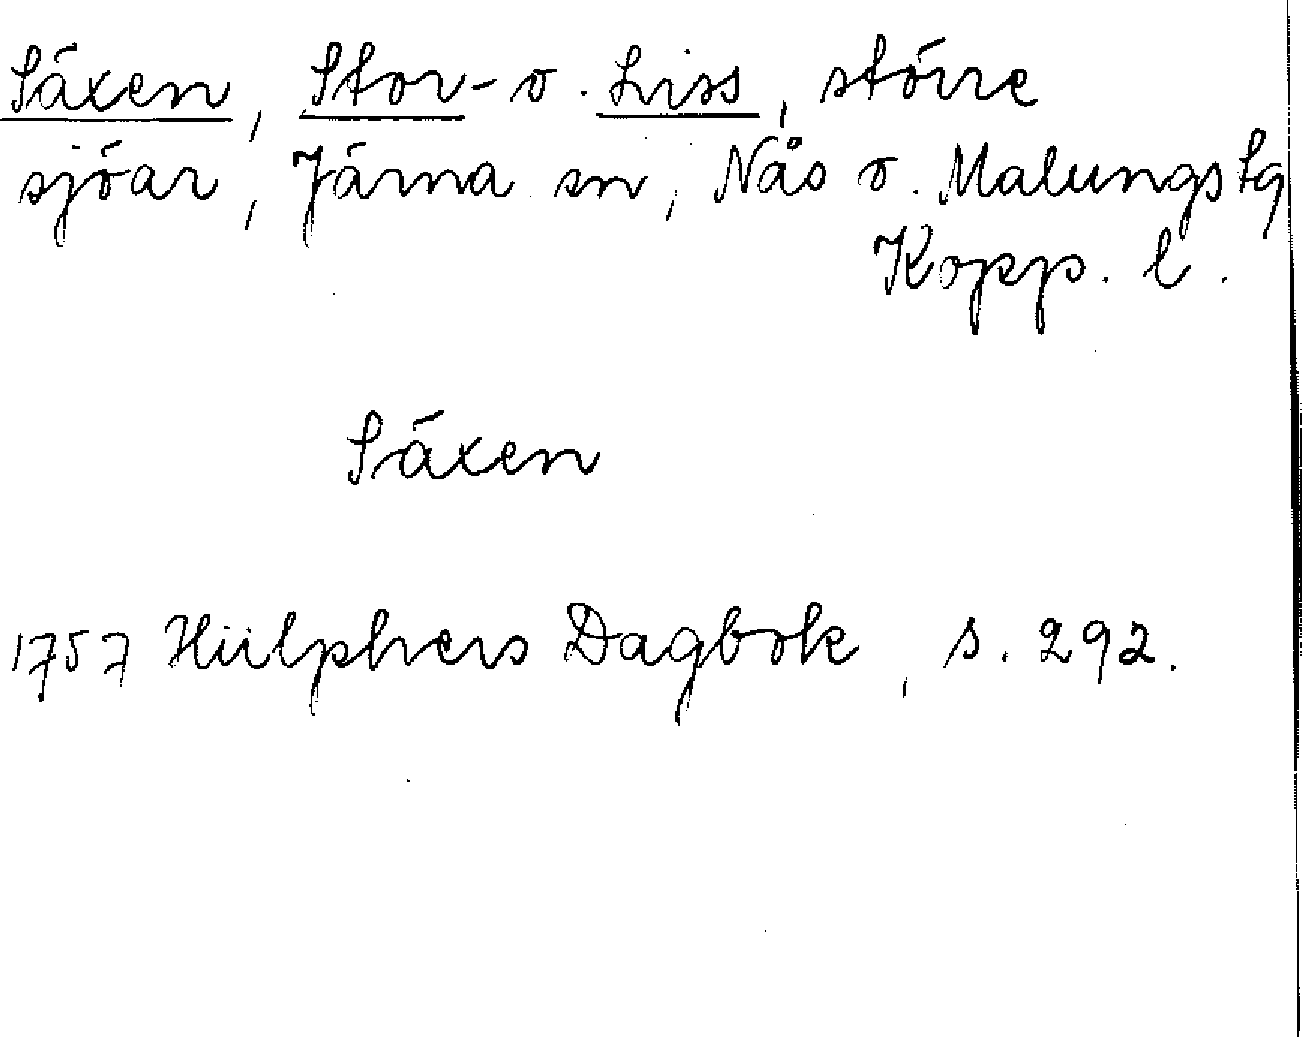 Säxen, Stor- o. Liss, större
sjöar, Järna sn, Nås o. Malungs tg
Kopp. l.
Säxen
1757 Hülphers Dagbok, s. 292.